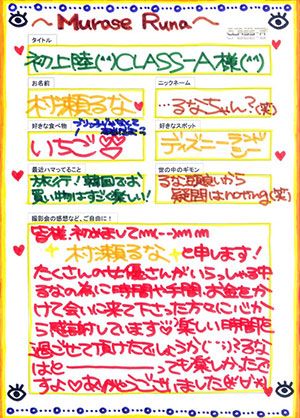 ～Murase Runa～
CLASS-A
タイトル
初上陸(^^)CLASS-A様(^^)
お名前
村瀬るな
ニックネーム
…るなちゃん?(笑)
好きな食べ物
いちご♡♡
好きなスポット
ディズニーランド
シー
最近ハマってること
旅行!韓国でお
買い物はすごく楽しい!
世の中のギモン
るな頭良いから
疑問はnothing(笑)
撮影会の感想など、ご自由に!
皆様、初めましてm(_ _)m m
村瀬るなと申します!
たくさんの女優さんがいらっしゃる中
るなの為に時間や手間、お金をか
けて会いに来て下さった方々に心か
ら感謝しています♡楽しい時間を
過ごせて頂けたでしょうか(°°)?るな
はと―――――っても楽しかったで
すよ♡ありがとうございました(*^^*)